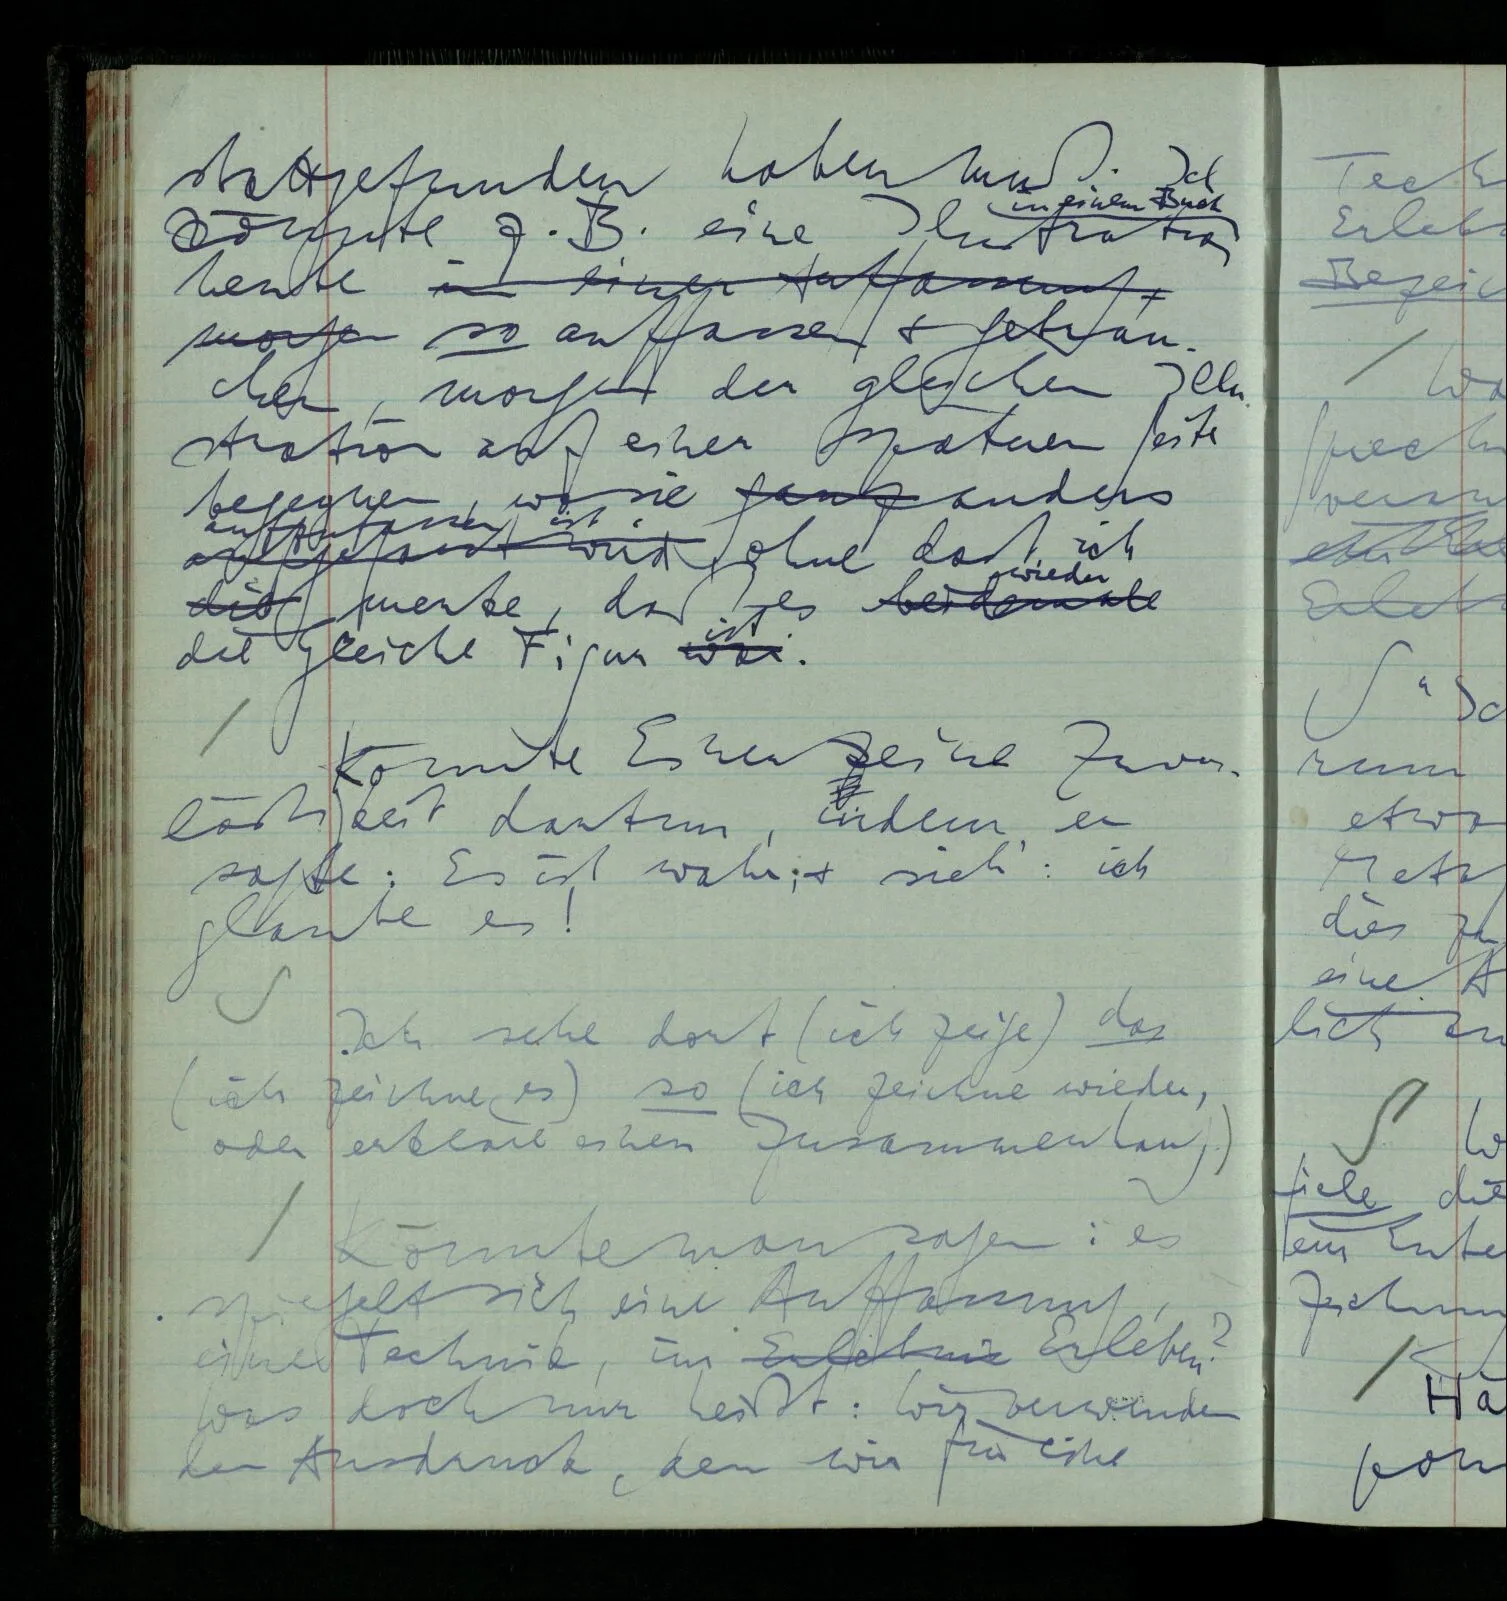 stattgefunden haben muß. Ich
könnte z.B. eine Illustration in einem Buch
heute in einer Auffassung,
morgen so auffassen & gebrau-
chen, morgen der gleichen Illu-
stration auf einer späteren Seite
begegnen, wo sie ganz anders
aufzufassen ist,
aufgefasst wird, ohne daß ich
wieder
dies merke, daß es beidemale
die gleiche Figur war ist.
/
Könnte Einer seine Zuver-
lässigkeit dartun, indem er
sagte: Es ist wahr; & sieh': ich
glaube es!
S
Ich sehe dort (ich zeige) das
(ich zeichne es) so (ich zeichne wieder,
oder erkläre einen Zusammenhang)
/
Könnte man sagen: es
spiegelt sich eine Auffassung,
eine Technik, im Erlebnis Erleben?
Was doch nur heißt: wir verwenden
den Ausdruck, den wir für eine
Tech
Erleb
Bezeich
/
Wa
sprech
verw
Erleb
S
"Sch
rum
etwa
Meta
dies
eine A
lich
S
W
viele die
ein Ente
Zeichnung
/
Hä